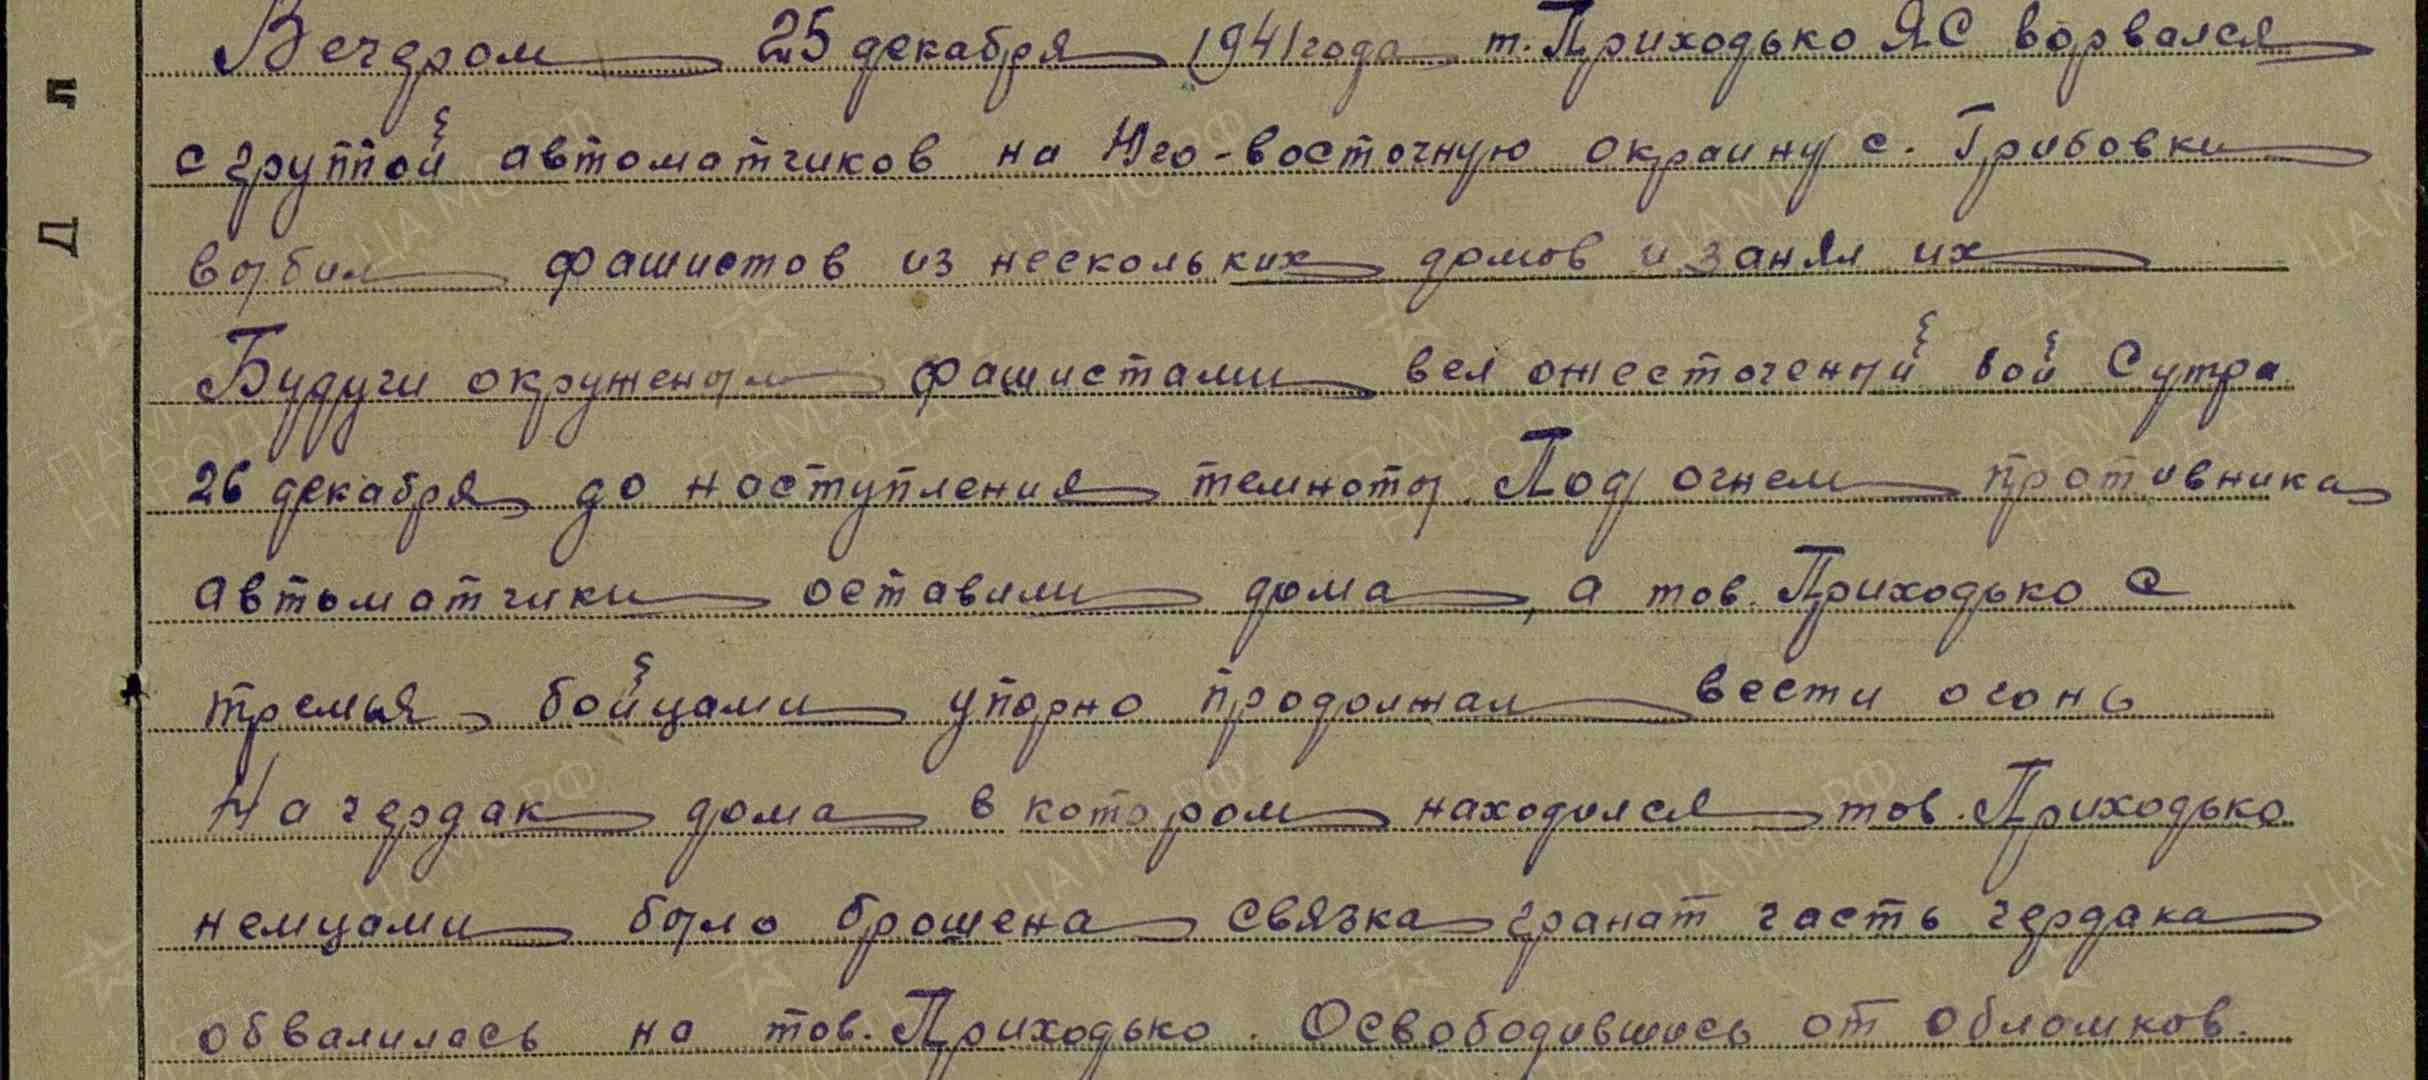 Вечером 25 декабря 1941 года т. Приходько ЯС ворвался
с группой автоматчиков на Юго-восточную окраину с. Грибовки
выбил фашистов из нескольких домов и занял их
Будучи окруженым фашистами вел ожесточеный бой С утра
26 декабря до наступления темноты. Под огнем противника
автоматчики оставили дома, а тов. Приходько с
тремья бойцами упорно продолжал вести огонь
На чердак дома в котором находился тов. Приходько
немцами было брошена связка гранат часть чердака
обвалилась на тов. Приходько. Освободившись от обломков.